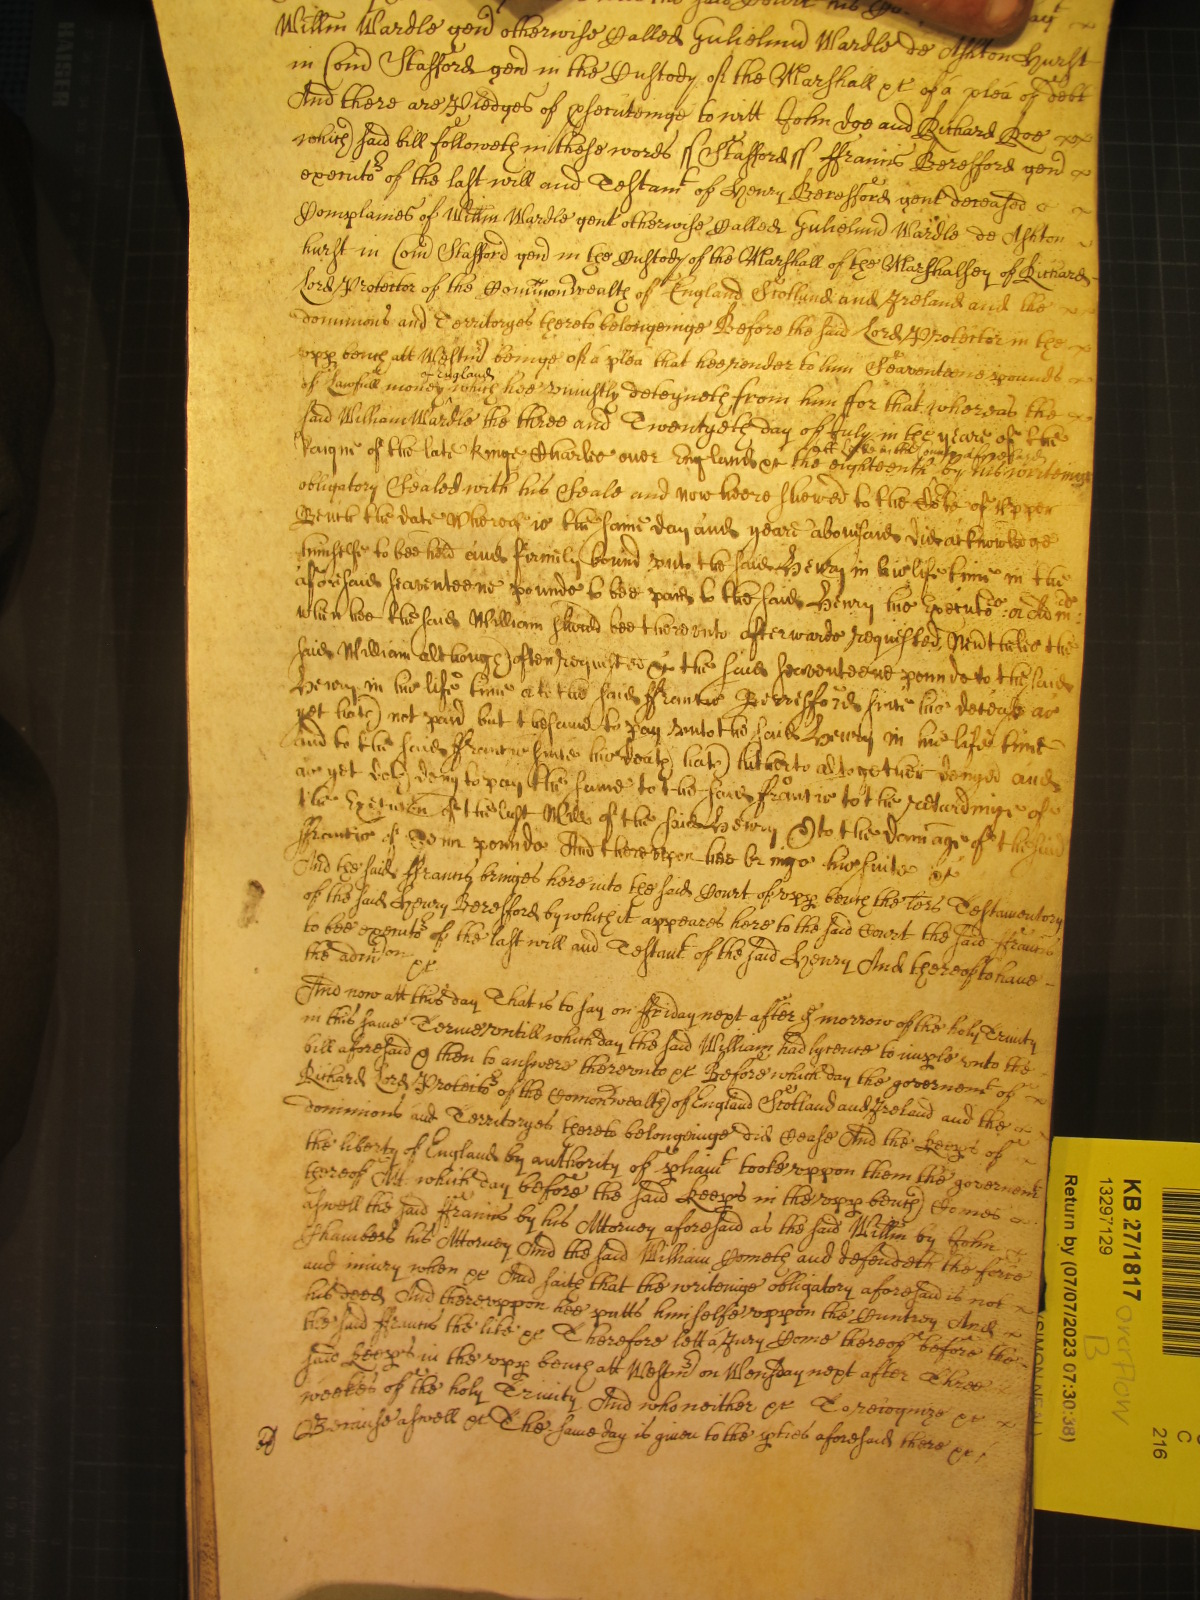 Willm Wardle gen̄ otherwise Called Gulielmū Wardle de Ashton Hurst
in Com̄ Stafford gen̄ in the Custody of the Marshall &c of a plea of debt
And there are Pledges of psecuteinge to witt John doe and Richard Roe
which said bill followeth in these words ss Stafford ss ffrancis Beresford gen̄
executor of the last will and Testamt of Henry Beresford gent deceased
Complaines of Willm Wardle gent otherwise Called Gulielmū Wardle de Ashton
hurst in Com̄ Stafford gen̄ in the Custody of the Marshall of the Marshalsey of Richard
Lord Protector of the Common Wealth of England Scotland and Ireland and the
dominions and Territoryes thereto belongeinge Before the said Lord Protector in the
upp bench att Westm̄ beinge of a plea that hee render to him Seaventeene pounds
of Lawfull money of England which hee uniustly deteyneth from him ffor that whereas the
said William Wardle the three and Twentyeth day of July in the yeare of the
Raigne of the late Kinge Charles over England &c the eighteenth by his writeinge
obligatory Sealed with his Seale and now heere shewed to the Cōrt of Upper
Bench the date whereof is the same day and yeare abovesaid did acknowledge
himselfe to bee held and firmely bound unto the said Henry in his life time in the
aforesaid seaventeene pounds to bee paid to the said Henry his Executors or Adm
when hee the said William should bee thereunto afterwards requested Neverthelesse the
said William although often requested &c the said seaventeene pounds to the said
Henry in his life time or to the said ffrancis Berresfford since his decease as
yet hath not paid but the same to pay unto the said Henry in his life time
and to the said ffrancis since his death hath hitherto altogether denyed and
as yet doth deny to pay the same to the said ffrancis to the retardinge of
the Execucon of the last Will of the said Henry &to the damage of the said
ffrancis of Tenn pounds And thereupon hee bringe his suite &c
And the said ffrancis bringes here into the said Court of upp bench the lres Testamentory
of the said Henry Beresford by which it appeares here to the said Court the said ffrancis
to bee executor of the last will and Testamt of the said Henry And thereof to have
the admcon &c
And now att this day That is to say on ffriday next after ye morrow of the holy Trinity
in this same Terme untill which day the said William had lycence to imple unto the
bill aforesaid & then to answere thereunto &c Before which day the governemt of
Richard Lord Protector of the Comonwealth of England Scotland and Ireland and the
dominions and Territoryes thereto belongeinge did Cease And the Keeps of
the liberty of England by authority of pliamt tooke uppon them the governemt
thereof Att which day before the said Keeps in the upp bench Comes
aswell the said ffrancis by his Attorney aforesaid as the said Willm by John
Chambers his Attorney And the said William Cometh and defendeth the force
and iniury when &c And saith that the writeinge obligatory aforesaid is not
his deed And thereuppon hee putts himselfe uppon the Cuntrey And
the said ffrancis the like &c Therefore lett a Jury Come thereof before the
said Keeps in the upp bench att Westm̄ on Wensday next after Three
weekes of the holy Trinity And who neither &c To recognize &c
Because aswell &c The same day is given to the pties aforesaid there &c
KB 27/1817
13297129
Return by (07/07/2023 07:30:38)
overflow
B
C
216